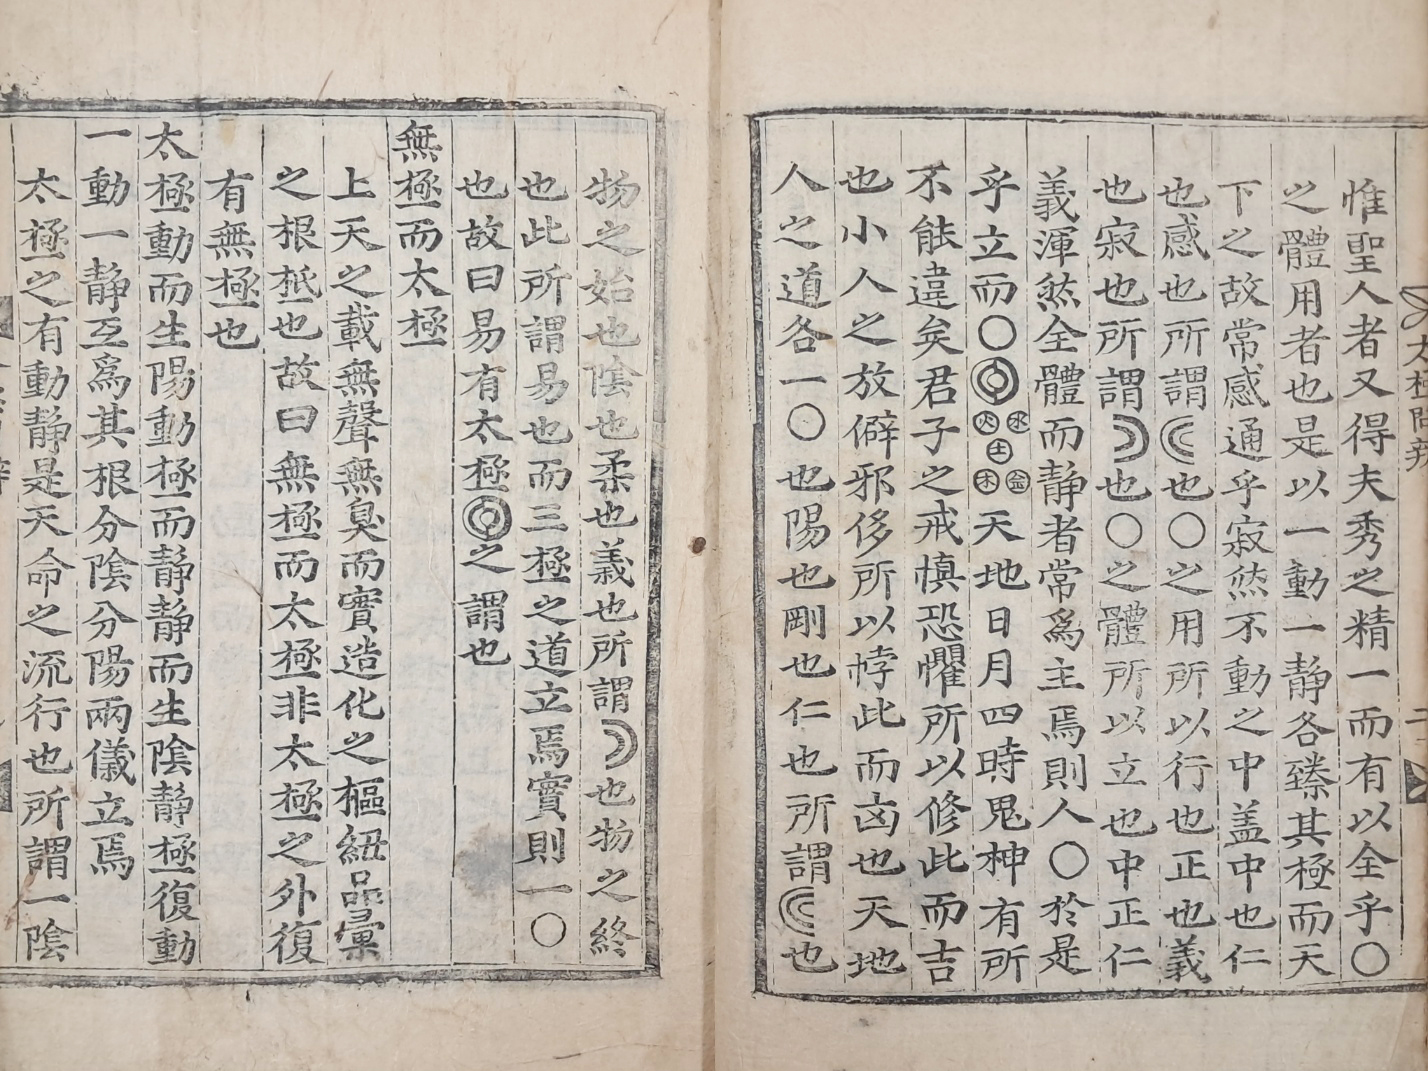 太極問辨
二
惟聖人者又得夫秀之精一而有以全乎〇
之體用者也是以一動一静各臻其極而天
下之故常感通乎寂然不動之中盖中也仁
也感也所謂☽也〇之用所以行也正也義
也寂也所謂☽也〇之體所以立也中正仁
義渾然全體而静者常爲主焉則人〇於是
乎立而〇◎火水土木金天地日月四時鬼神有所
不能違矣君子之戒慎恐懼所以修此而吉
也小人之放僻邪侈所以悖此而凶也天地
人之道各一〇也陽也剛也仁也所謂☽也
物之始也陰也柔也義也所謂☽也物之終
也此所謂易也而三極之道立焉實則一〇
也故曰易有太極◎之謂也
無極而太極
上天之載無聲無臭而實造化之樞紐品彙
之根柢也故曰無極而太極非太極之外復
有無極也
太極動而生陽動極而静静而生陰静極復動
一動一静互爲其根分陰分陽兩儀立焉
太極之有動静是天命之流行也所謂一陰